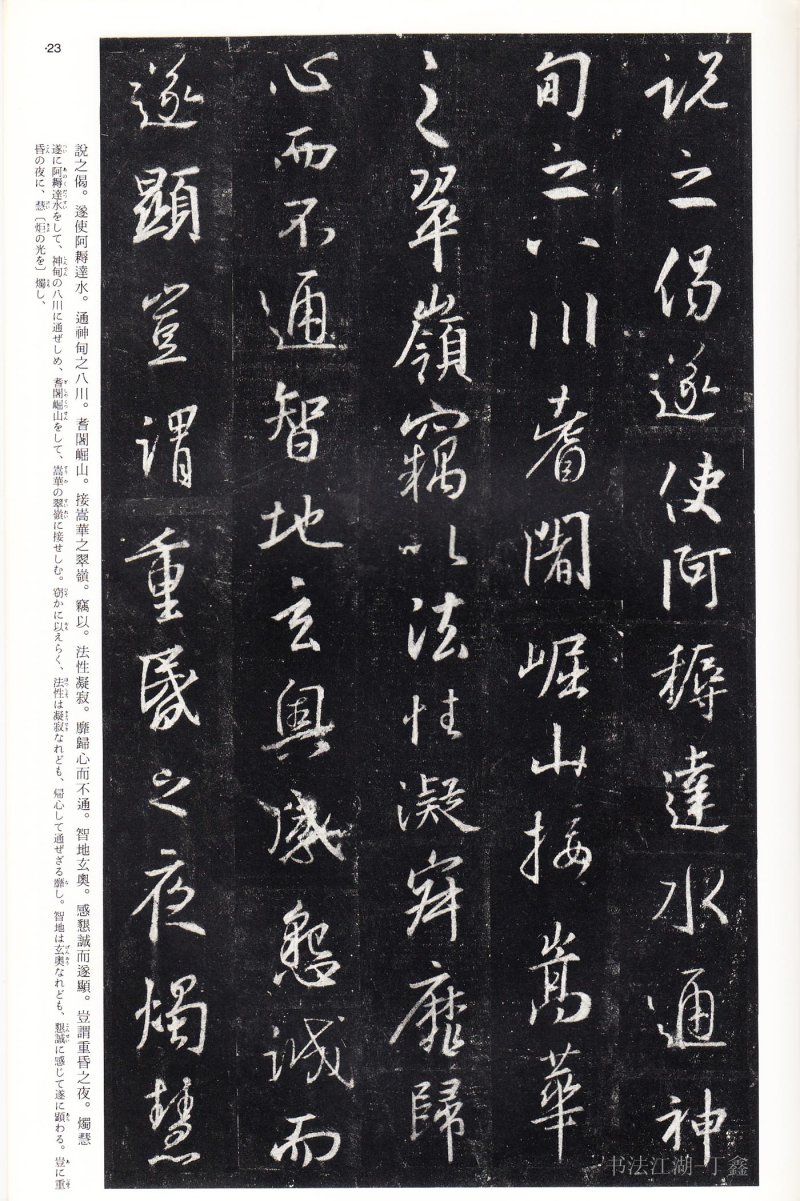 説之偈遂使阿耨達水通神
甸之八川耆闍崛山接嵩華
之翠嶺竊以法性凝寂靡歸
心而不通智地玄奥感懇誠而
遂顯豈謂重昏之夜燭慧
·23
說之偈。遂使阿耨達水。通神甸之八川。耆闍崛山。接嵩華之翠嶺。竊以。法性凝寂。靡歸心而不通。智地玄奥。感懇誠而遂顯。豈謂重昏之夜。燭慧
遂に阿耨達水をして、神甸の八川に通ぜしめ、耆闍崛山をして、嵩華の翠嶺に接せしむ。窃かに以えらく、法性は凝寂なれども、帰心して通ぜざる靡し。智地は玄奥なれども、懇誠に感じて遂に顕わる。豈に重
昏の夜に、慧〔炬の光を〕燭し、
书法江湖-丁鑫